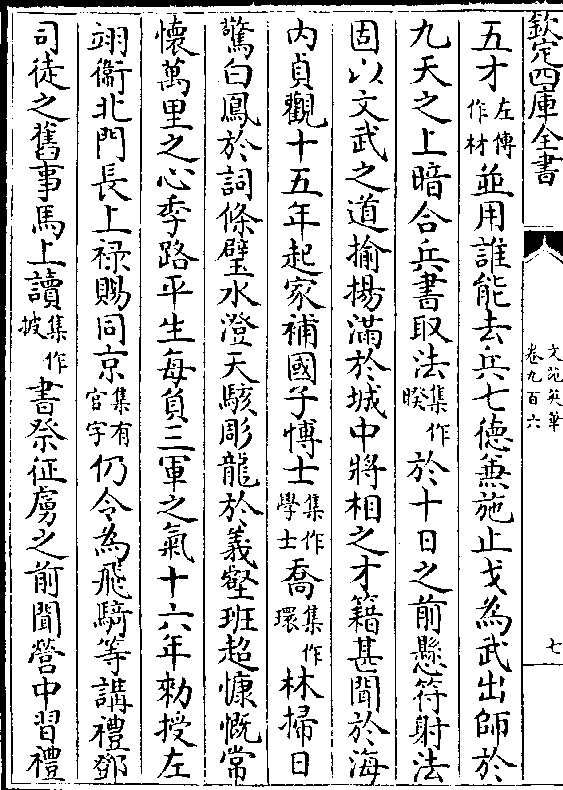 欽定四庫全書
文苑英華
卷九百六
七
五才左傳作材並用誰能去兵七德兼施止戈為武出師於
九天之上暗合兵書取法集作暌於十日之前懸符射法
固以文武之道揄揚滿於城中將相之才籍甚聞於海
内貞觀十五年起家補國子博士集作學士喬集作環林掃日
驚白鳳於詞條璧水澄天駭彫龍於義壑班超慷慨常
懷萬里之心季路平生每負三軍之氣十六年勅授左
翊衞北門長上祿賜同京集有官字仍令為飛騎等講禮鄧
司徒之舊事馬上讀集作披書祭征虜之前聞營中習禮